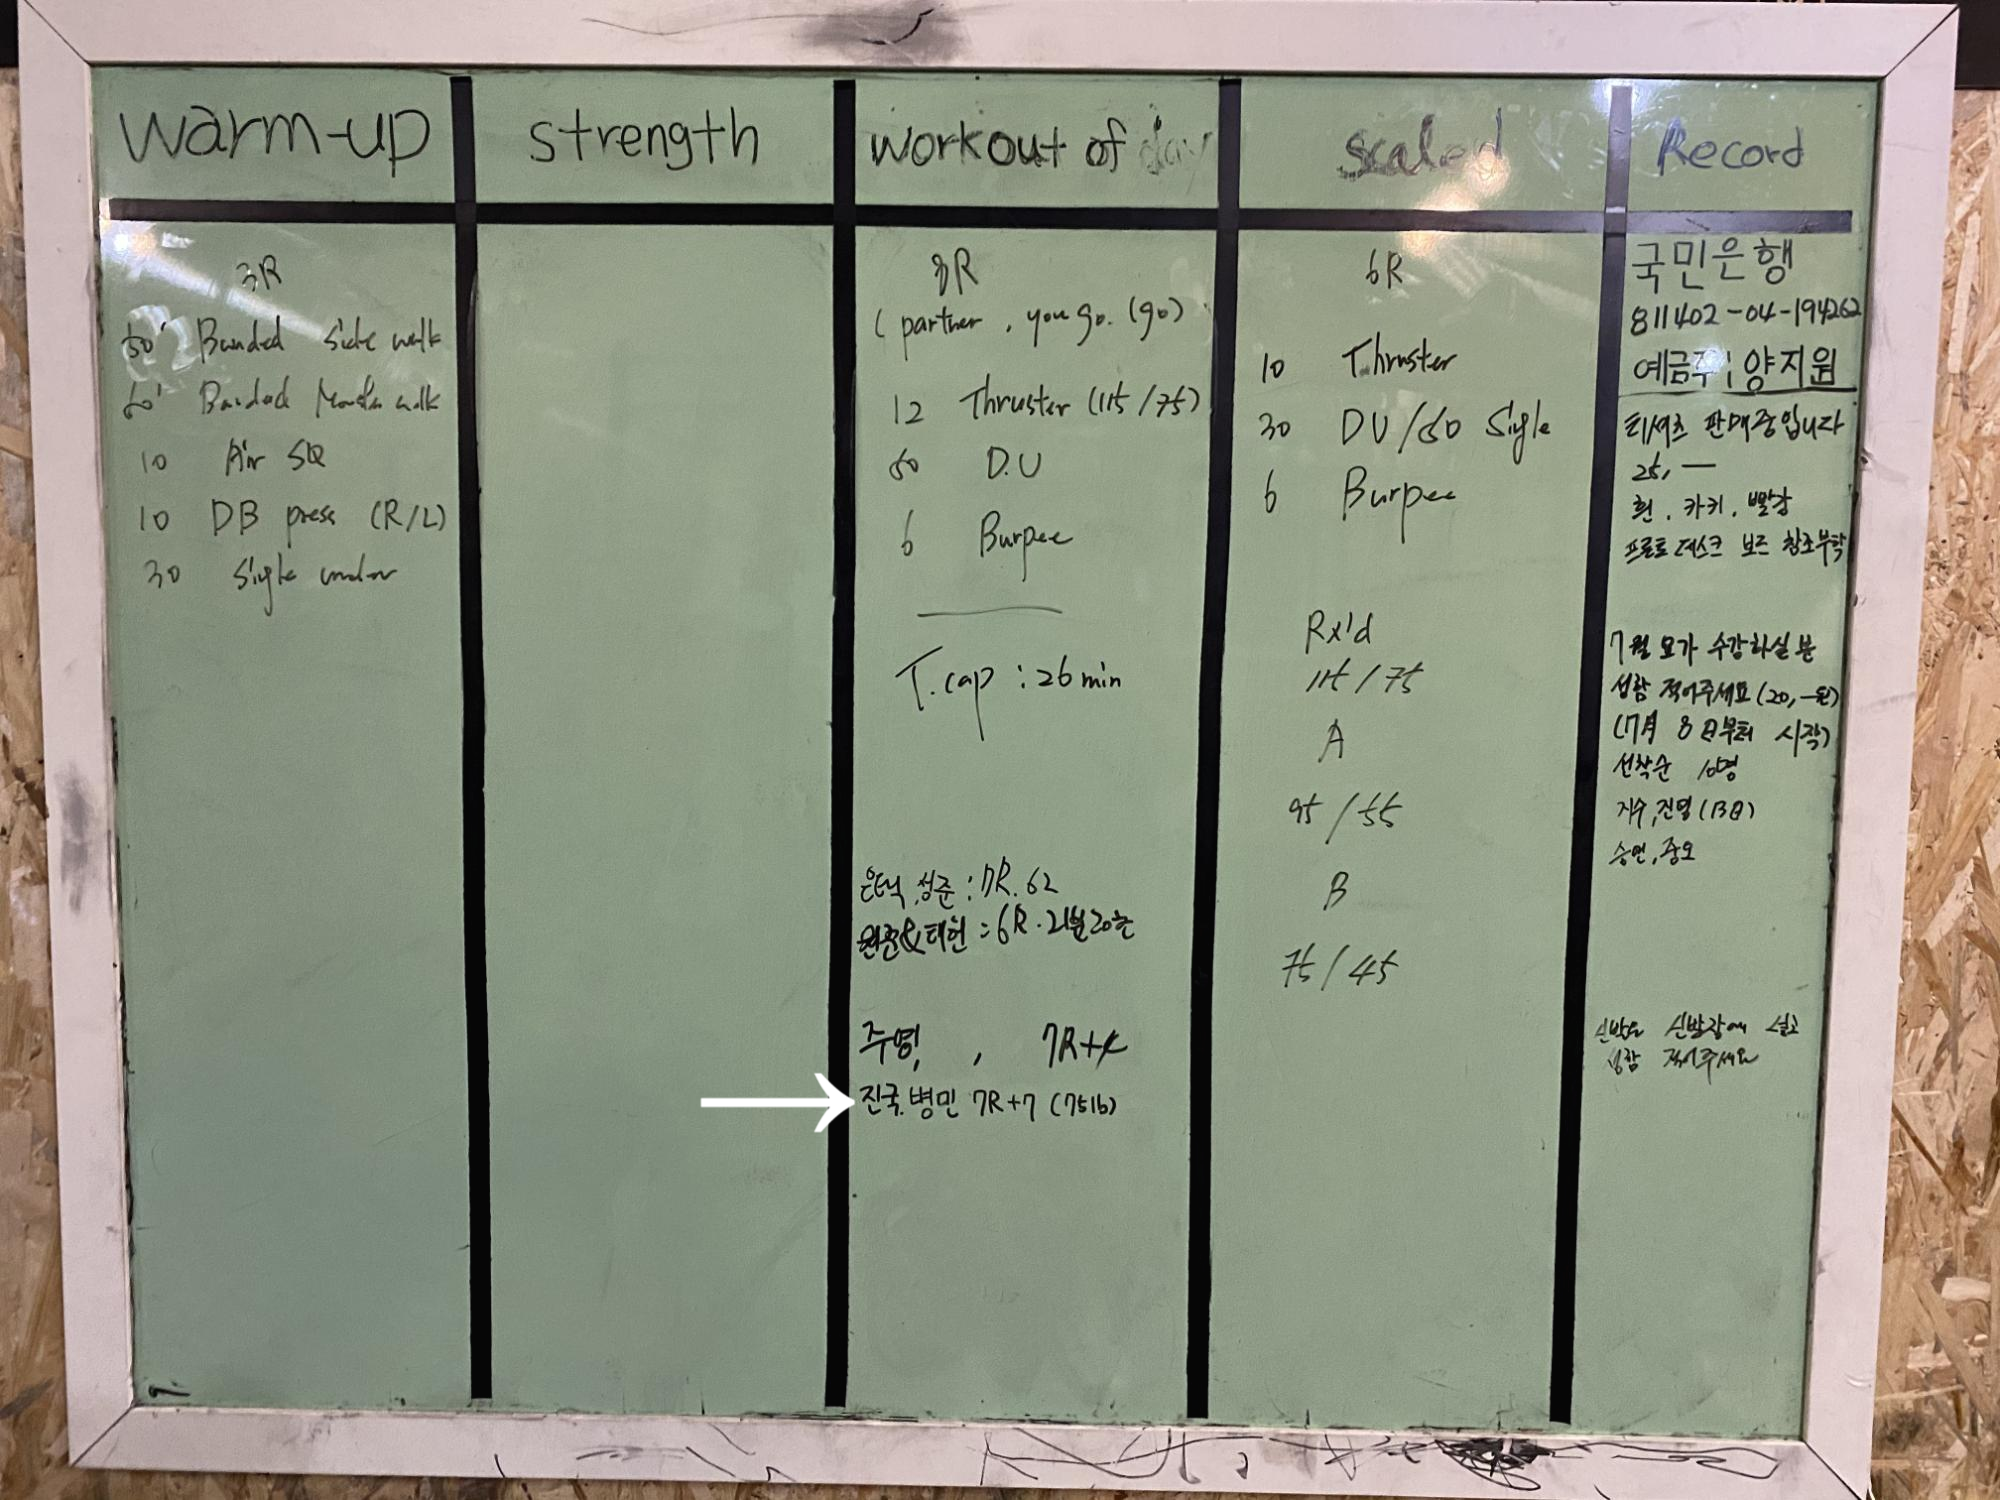 warm-up
3R
50' Banded Side walk
50' Banded Monster walk
10 Air SQ
10 DB press (R/L)
30 Single under
strength
workout of day
8R
( partner , you go. I go)
12 Thruster (115/75)
50 D.U
6 Burpee
T.cap : 26 min
은택, 성준 : 7R. 62
원준&태헌 : 6R. 21분20초
주영, , 7R+4
진국.병민 7R+7 (75lb)
scaled
6R
10 Thruster
30 DU/60 Single
6 Burpee
Rx'd
115 / 75
A
95 / 55
B
75 / 45
Record
국민은행
811402-04-194262
예금주: 양지원
티셔츠 판매중입니다
25,—
흰. 카키. 빨강
프론트 데스크 보드 참조부탁
7월 요가 수강하실 분
성함 적어주세요 (20,—원)
(7月 8日부터 시작)
선착순 10명
지수, 진영 (13日)
승연,
신발은 신발장에
성함 적어주세요